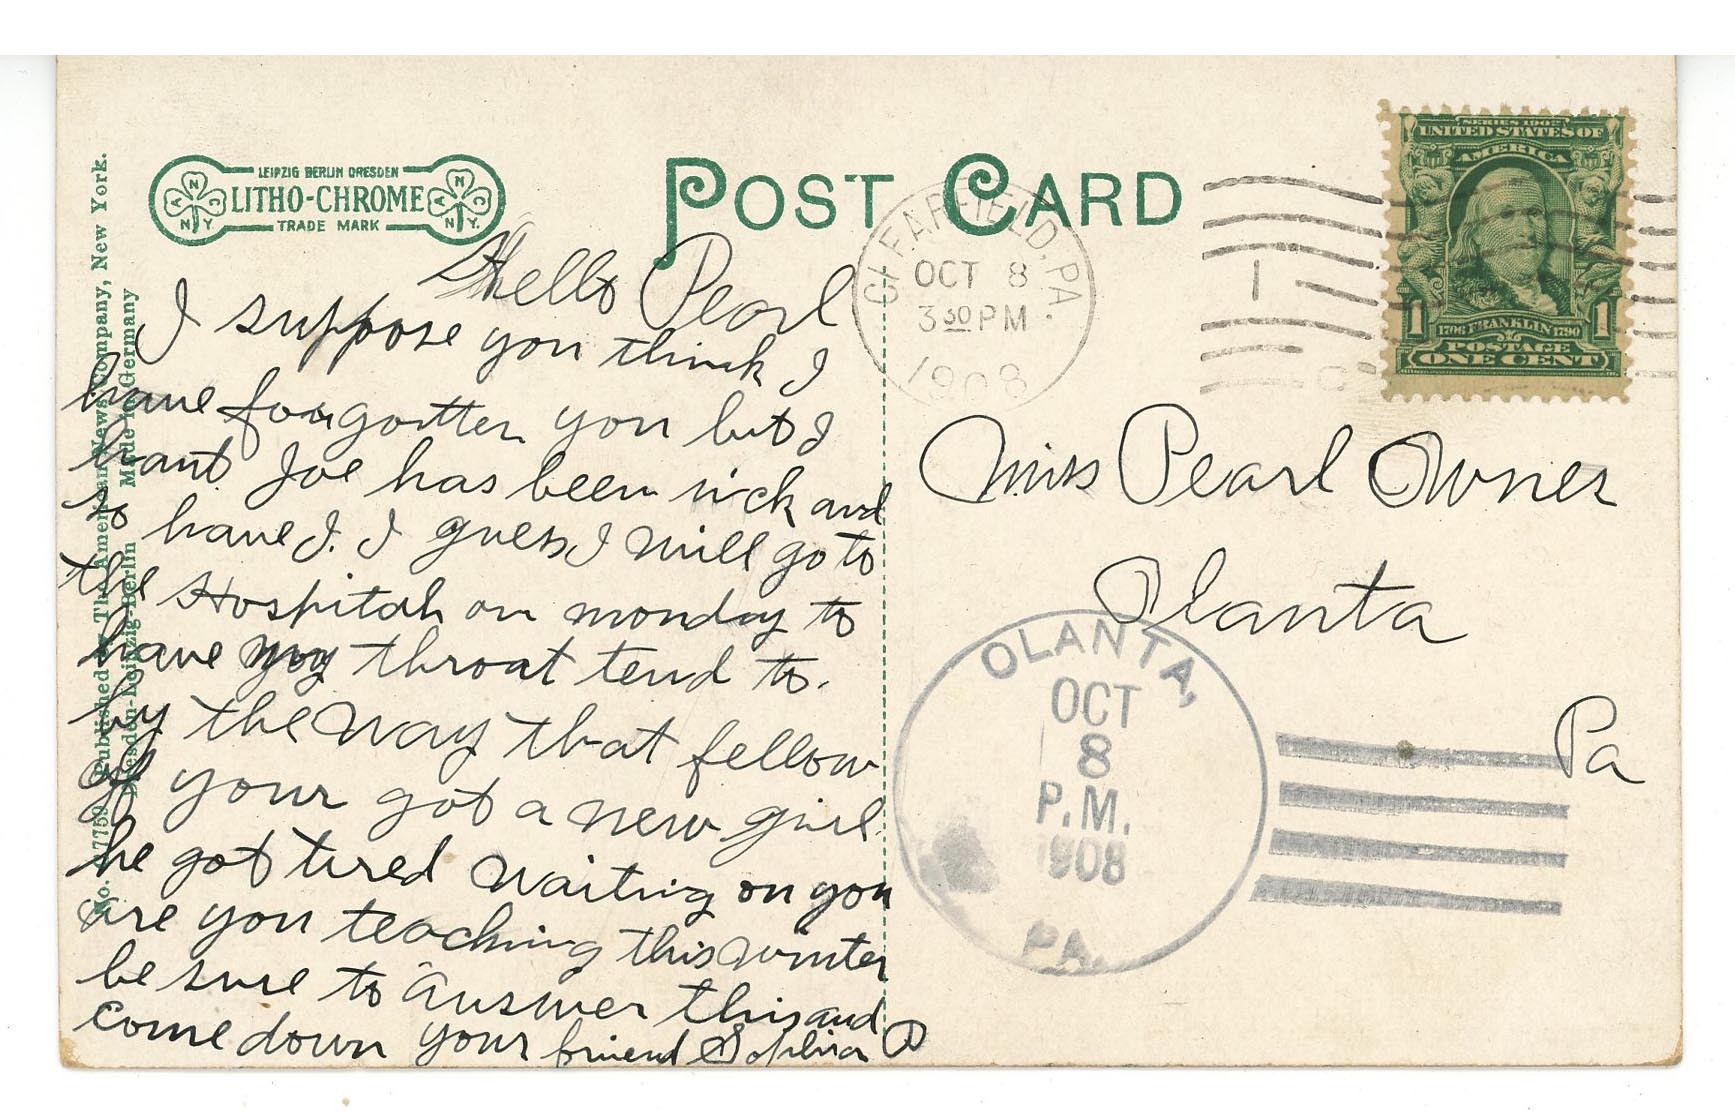 LEIPZIG BERLIN DRESDEN
LITHO-CHROME
TRADE MARK
A N C N.Y.
A N C N.Y.
POST CARD
Published by The American News Company, New York.
Dresden-Leipzig-Berlin Made in Germany
CLEARFIELD, PA.
OCT 8
3 30 PM
1908
1
SERIES 1902
UNITED STATES OF
AMERICA
1706 FRANKLIN 1790
1 1
POSTAGE
ONE CENT
Hello Pearl
I suppose you think I
have forgotten you but I
hant Joe has been sick and
so have I. I guess I will go to
the Hospital on monday to
have my throat tend to.
by the way that fellow
of your got a new girl
he got tired waiting on you
are you teaching this winter
be sure to answer this and
come down your friend Sophia D
Miss Pearl Owner
Olanta
Pa
OLANTA,
OCT
8
P.M.
1908
PA.